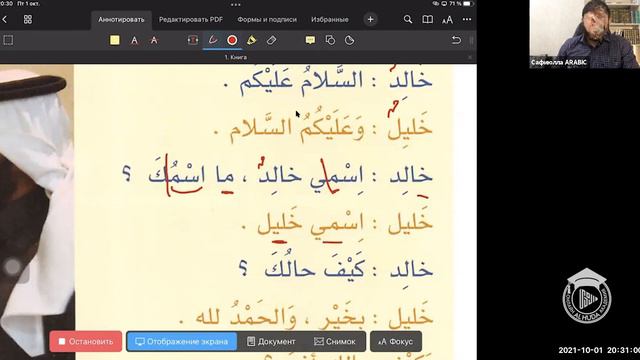 0:30 Пт 1 окт.
71 %
Аннотировать Редактировать PDF Формы и подписи Избранные
1. Книга
خالِد : السَّلامُ عَلَيْكُم .
خَليل : وَعَلَيْكُمُ السَّلام .
خالِد : اِسْمي خالِد ، ما اسْمُكَ ؟
خَليل : اِسْمي خَليل .
خالِد : كَيْفَ حالُكَ ؟
خَليل : بِخَيْرٍ ، وَالحَمْدُ لله .
Остановить Отображение экрана Документ Снимок Фокус
Сафиюлла ARABIC
2021-10-01 20:31:0